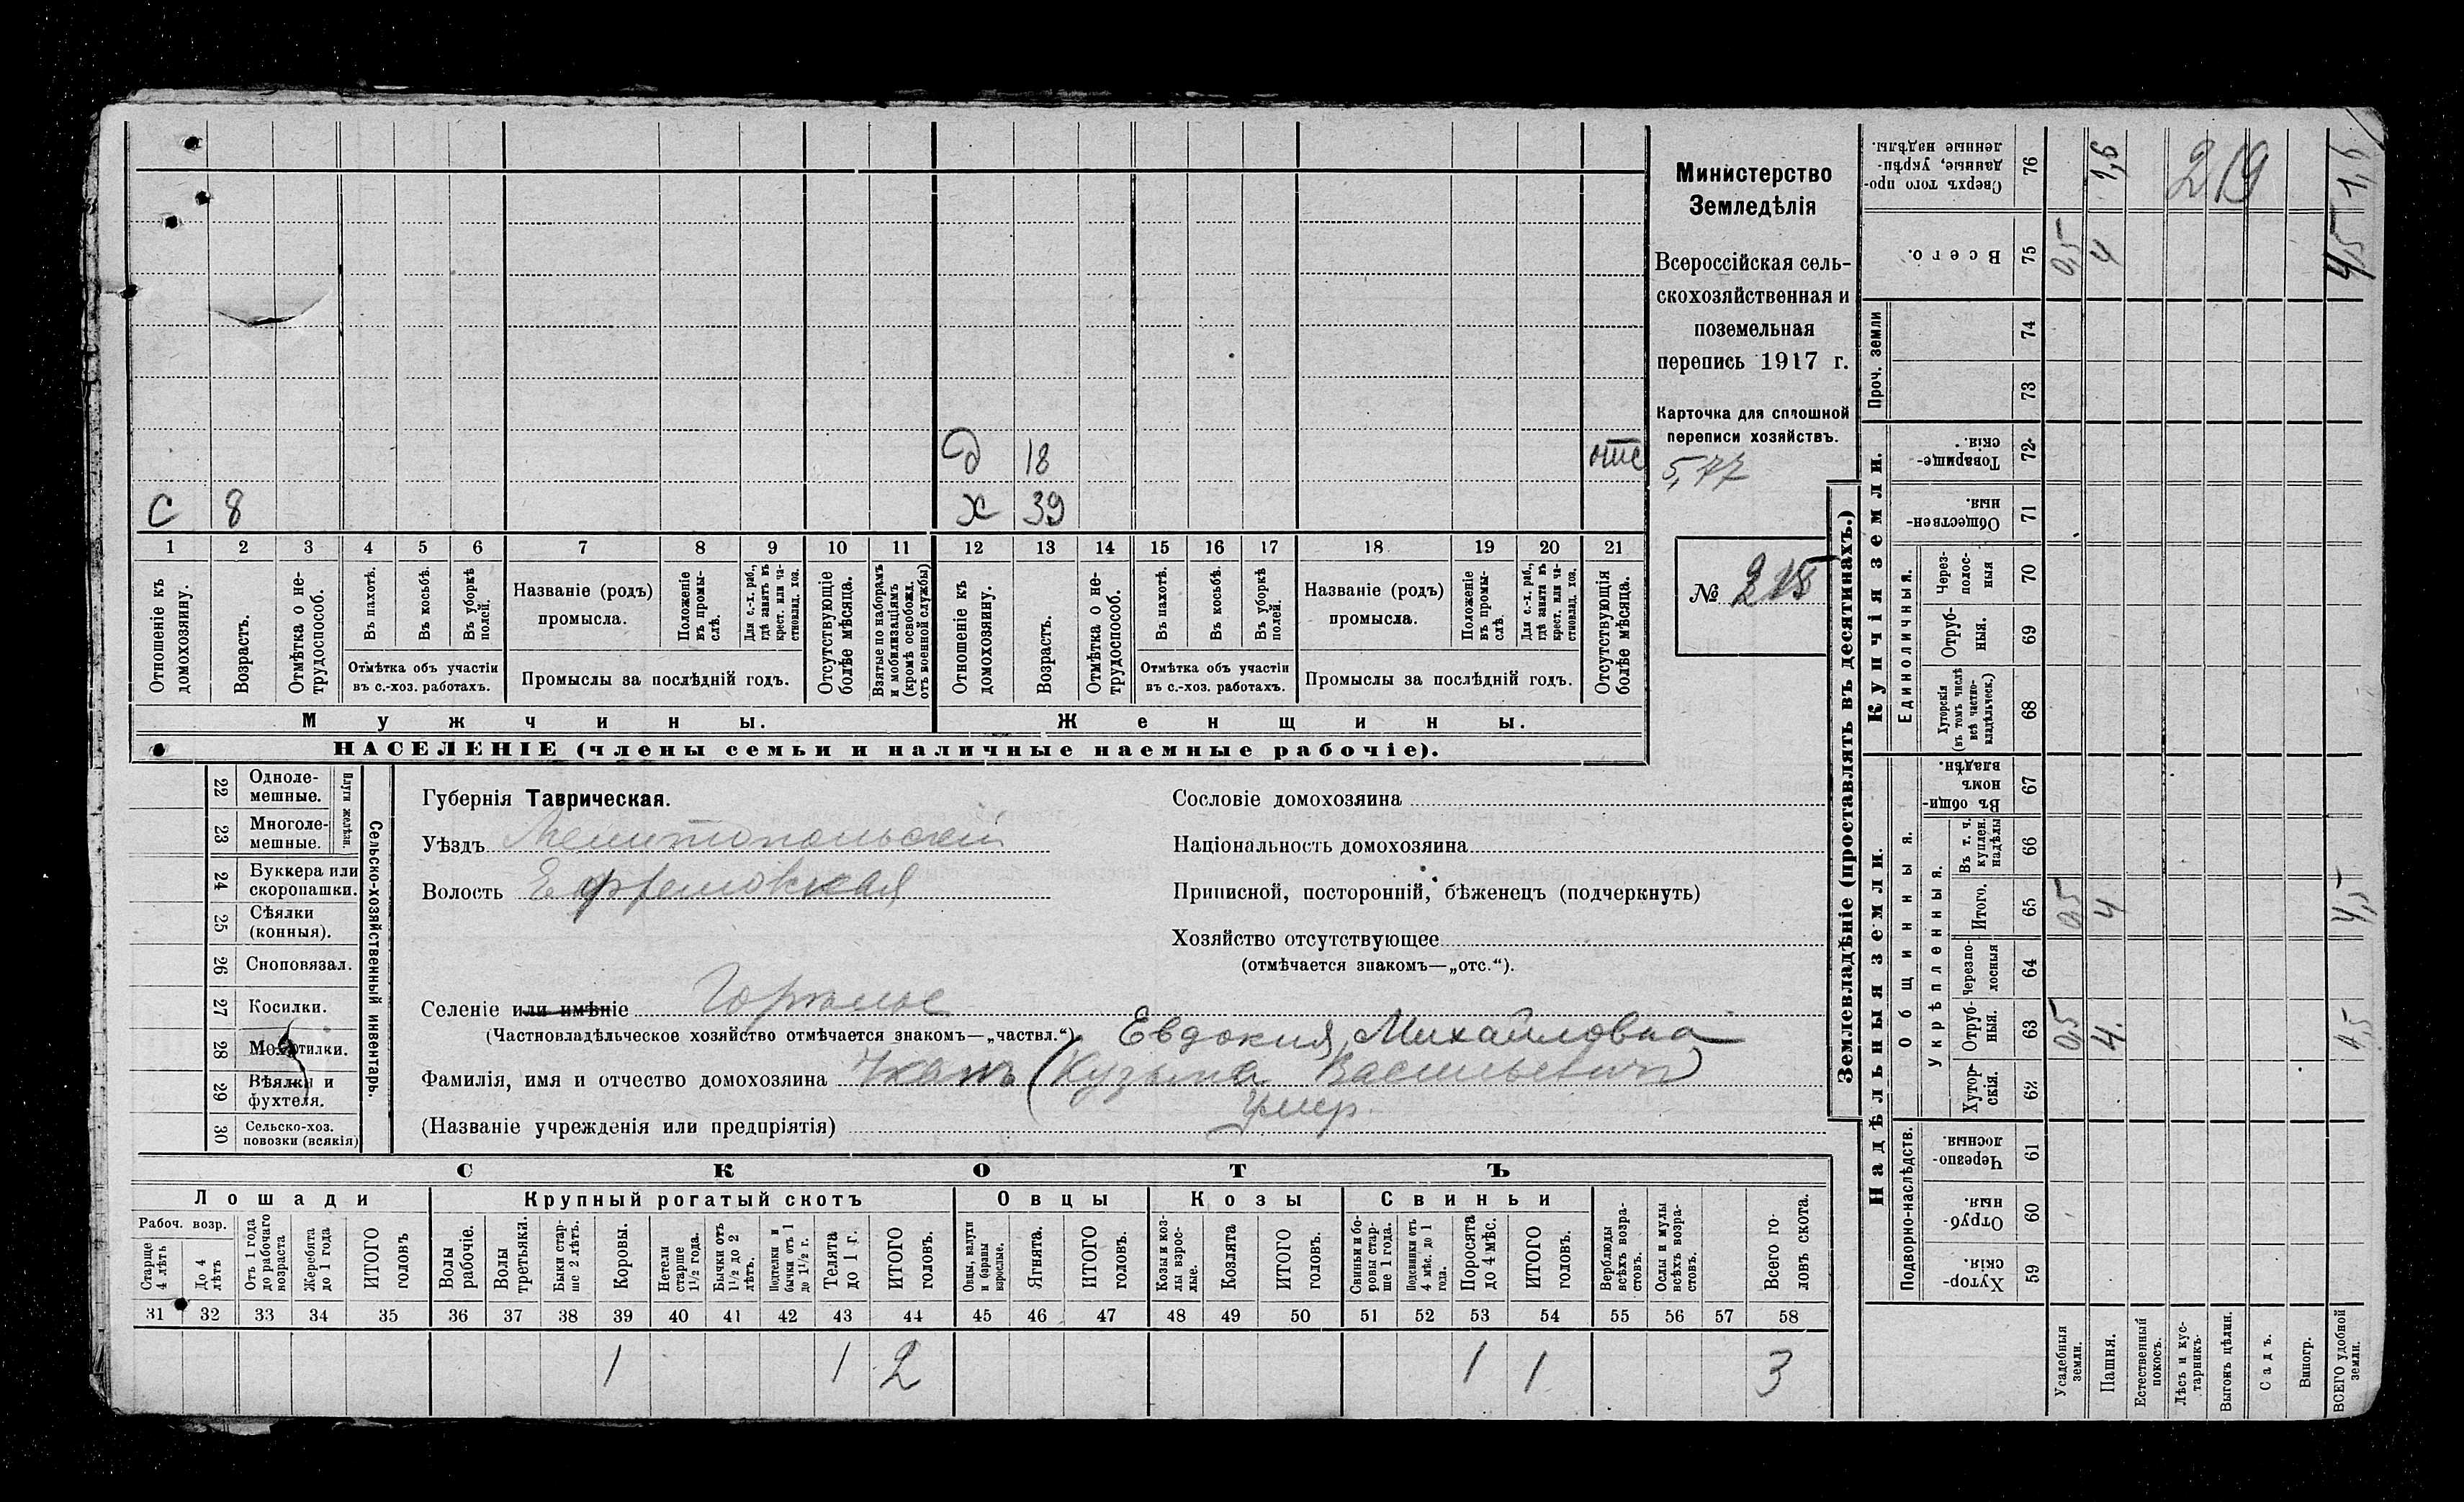 Министерство
Земледѣлія
Всероссійская сель-
скохозяйственная и
поземельная
перепись 1917 г.
Карточка для сплошной
переписи хозяйствъ.
5,77
№ 215
Д 18 отс
С 8 Х 39
1 2 3 4 5 6 7 8 9 10 11 12 13 14 15 16 17 18 19 20 21
Отношеніе къ домохозяину.
Возрастъ.
Отмѣтка о не-трудоспособ.
Въ пахотѣ.
Въ косьбѣ.
Въ уборкѣ полей.
Отмѣтка объ участіи
въ с.-хоз. работахъ.
Названіе (родъ)
промысла.
Положеніе въ промы-слѣ.
Для с.-х. раб., гдѣ занятъ въ крест. или ча-стновлад. хоз.
Промыслы за послѣдній годъ.
Отсутствующіе болѣе мѣсяца.
Взятые по наборамъ и мобилизаціямъ (кромѣ освобожд. отъ военной службы)
Отношеніе къ домохозяину.
Возрастъ.
Отмѣтка о не-трудоспособ.
Въ пахотѣ.
Въ косьбѣ.
Въ уборкѣ полей.
Отмѣтка объ участіи
въ с.-хоз. работахъ.
Названіе (родъ)
промысла.
Положеніе въ промы-слѣ.
Для с.-х. раб., гдѣ занята въ крест. или ча-стновлад. хоз.
Промыслы за послѣдній годъ.
Отсутствующія болѣе мѣсяца.
Мужчины.
Женщины.
НАСЕЛЕНІЕ (члены семьи и наличные наемные рабочіе).
22 Одноле-мешные.
23 Многоле-мешные.
Плуги желѣзн.
24 Буккера или скоропашки.
25 Сѣялки (конныя).
26 Сноповязал.
27 Косилки.
28 Молотилки.
29 Вѣялки и фухтеля.
30 Сельско-хоз. повозки (всякія)
Сельско-хозяйственный инвентарь.
Губернія Таврическая.
Уѣздъ Мелитопольскій
Волость Ефремовская
Селеніе или имѣніе Горькое
(Частновладѣльческое хозяйство отмѣчается знакомъ—„частвл.“)
Евдокия Михайловна
Фамилія, имя и отчество домохозяина Ткачъ (Кузьма Васильевич)
умер
(Названіе учрежденія или предпріятія)
Сословіе домохозяина
Національность домохозяина
Приписной, посторонній, бѣженецъ (подчеркнуть)
Хозяйство отсутствующее
(отмѣчается знакомъ—„отс.“).
СКОТЪ
Лошади
Крупный рогатый скотъ
Овцы
Козы
Свиньи
Рабоч. возр.
Старше 4 лѣтъ
До 4 лѣтъ
Отъ 1 года до рабочаго возраста
Жеребята до 1 года
ИТОГО головъ
Волы рабочіе.
Волы третьяки.
Быки стар-ше 2 лѣтъ.
Коровы.
Нетели старше 1½ года.
Бычки отъ 1½ до 2 лѣтъ.
Подтелки и бычки отъ 1 до 1½ г.
Телята до 1 г.
ИТОГО головъ.
Овцы, валухи и бараны взрослые.
Ягнята.
ИТОГО головъ.
Козы и коз-лы взрос-лые.
Козлята
ИТОГО головъ.
Свиньи и бо-ровы стар-ше 1 года.
Подсвинки отъ 4 мѣс. до 1 года.
Поросята до 4 мѣс.
ИТОГО головъ.
Верблюды всѣхъ возра-стовъ.
Ослы и мулы всѣхъ возра-стовъ.
Всего го-ловъ скота.
31 32 33 34 35 36 37 38 39 40 41 42 43 44 45 46 47 48 49 50 51 52 53 54 55 56 57 58
1 1 2 1 1 3
Землевладѣніе (проставлять въ десятинахъ.)
Сверхъ того про-даные, укрѣп-ленные надѣлы. 76 1,6 219 1,6
Всего. 75 0,5 4 4,5
Проч. земли
74
73
Купчія земли.
Товарище-скія. 72
Обществен-ныя. 71
Единоличныя.
Через-полос-ныя 70
Отруб-ныя. 69
Хуторскія (въ томъ числѣ всѣ частно-владѣльческ.) 68
Надѣльныя земли.
Общинныя.
Въ общи-номъ владѣн. 67
Укрѣпленныя.
Въ т. ч. куплен. надѣлы 66
Итого. 65 0,5 4 4,5
Черезпо-лосныя 64
Отруб-ныя. 63 0,5 4. 4,5
Хутор-скія. 62
Подворно-наслѣдств.
Черезпо-лосныя. 61
Отруб-ныя. 60
Хутор-скія. 59
Усадебныя земли.
Пашня.
Естественный покосъ.
Лѣсъ и кус-тарникъ.
Выгонъ цѣлин.
Садъ.
Виногр.
ВСЕГО удобной земли.